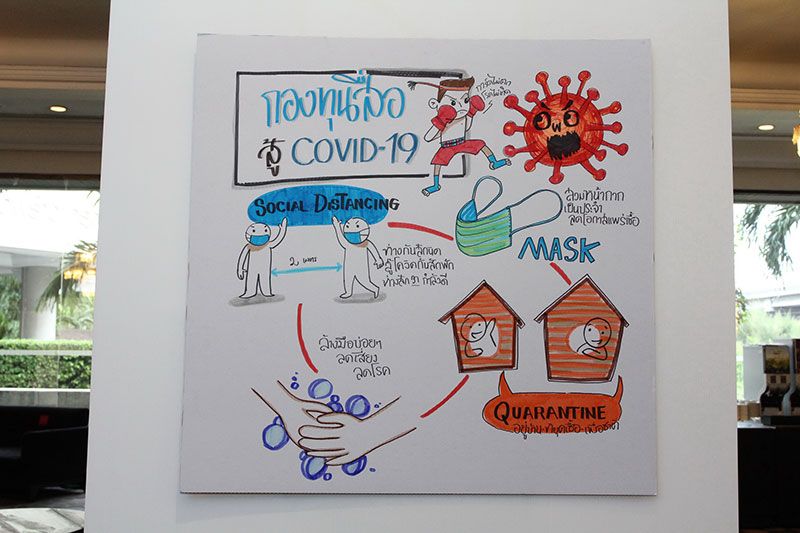 กองทุนสื่อ
สู้ COVID-19
การ์ดไม่ตก
โรคไม่เกิด
SOCIAL DISTANCING
2 เมตร
ห่างกันสักนิด
สู้โควิดกันสักพัก
ห่างสัก 2 กำลังดี
สวมหน้ากาก
เป็นประจำ
ลดโอกาสแพร่เชื้อ
MASK
ล้างมือบ่อยๆ
ลดเสี่ยง
ลดโรค
QUARANTINE
อยู่บ้าน หยุดเชื้อ เพื่อชาติ